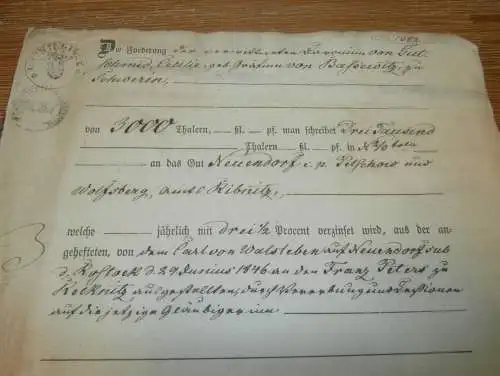 Die Forderung der verwittweten Baronin von Gut-
schmid, Cecilie, geb. Gräfin von Bassewitz, zu
Schwerin,
von 3000 Thalern, ßl. pf. man schreibet Drei Tausend
Thalern ßl. pf. in N 2/3
an das Gut Neuendorf c. p. Petschow und
Wolfsberg, Amts Ribnitz,
welche jährlich mit drei 1/2 Procent verzinset wird, aus der an-
gehefteten, von dem Carl von Walsleben auf Neuendorf sub
d. Rostock d. 24 Junius 1846 an den Franz Peters zu
ausgestellten, durch Vererbung und Cessionen
auf die jetzige Gläubigerinn